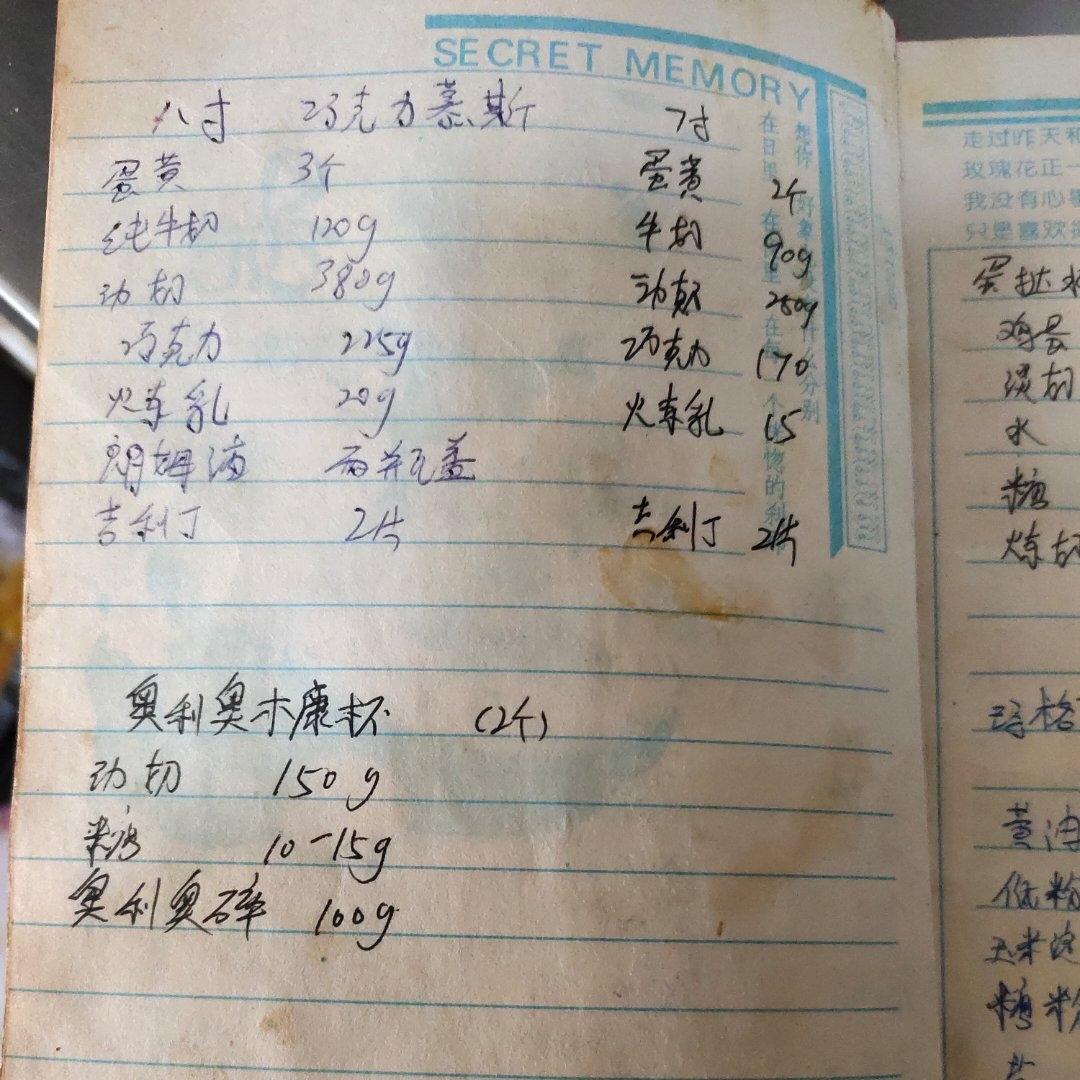 SECRET MEMORY
八寸 巧克力慕斯 7寸
蛋黄 3个 蛋黄 2个
纯牛奶 120g 牛奶 90g
动奶 380g 动奶 280g
巧克力 225g 巧克力 170
火东乳 20g 火东乳 15
朗姆酒 两并瓦盖
吉利丁 2片 吉利丁 2片
奥利奥木康杯 (2个)
动奶 150g
糖 10-15g
奥利奥碎 100g
走过昨天和
玫瑰花正一
我没有心
只是喜欢
蛋挞水
鸡蛋
淡奶
水
糖
炼奶
玛格
黄油
低粉
玉米淀
糖粉
盐